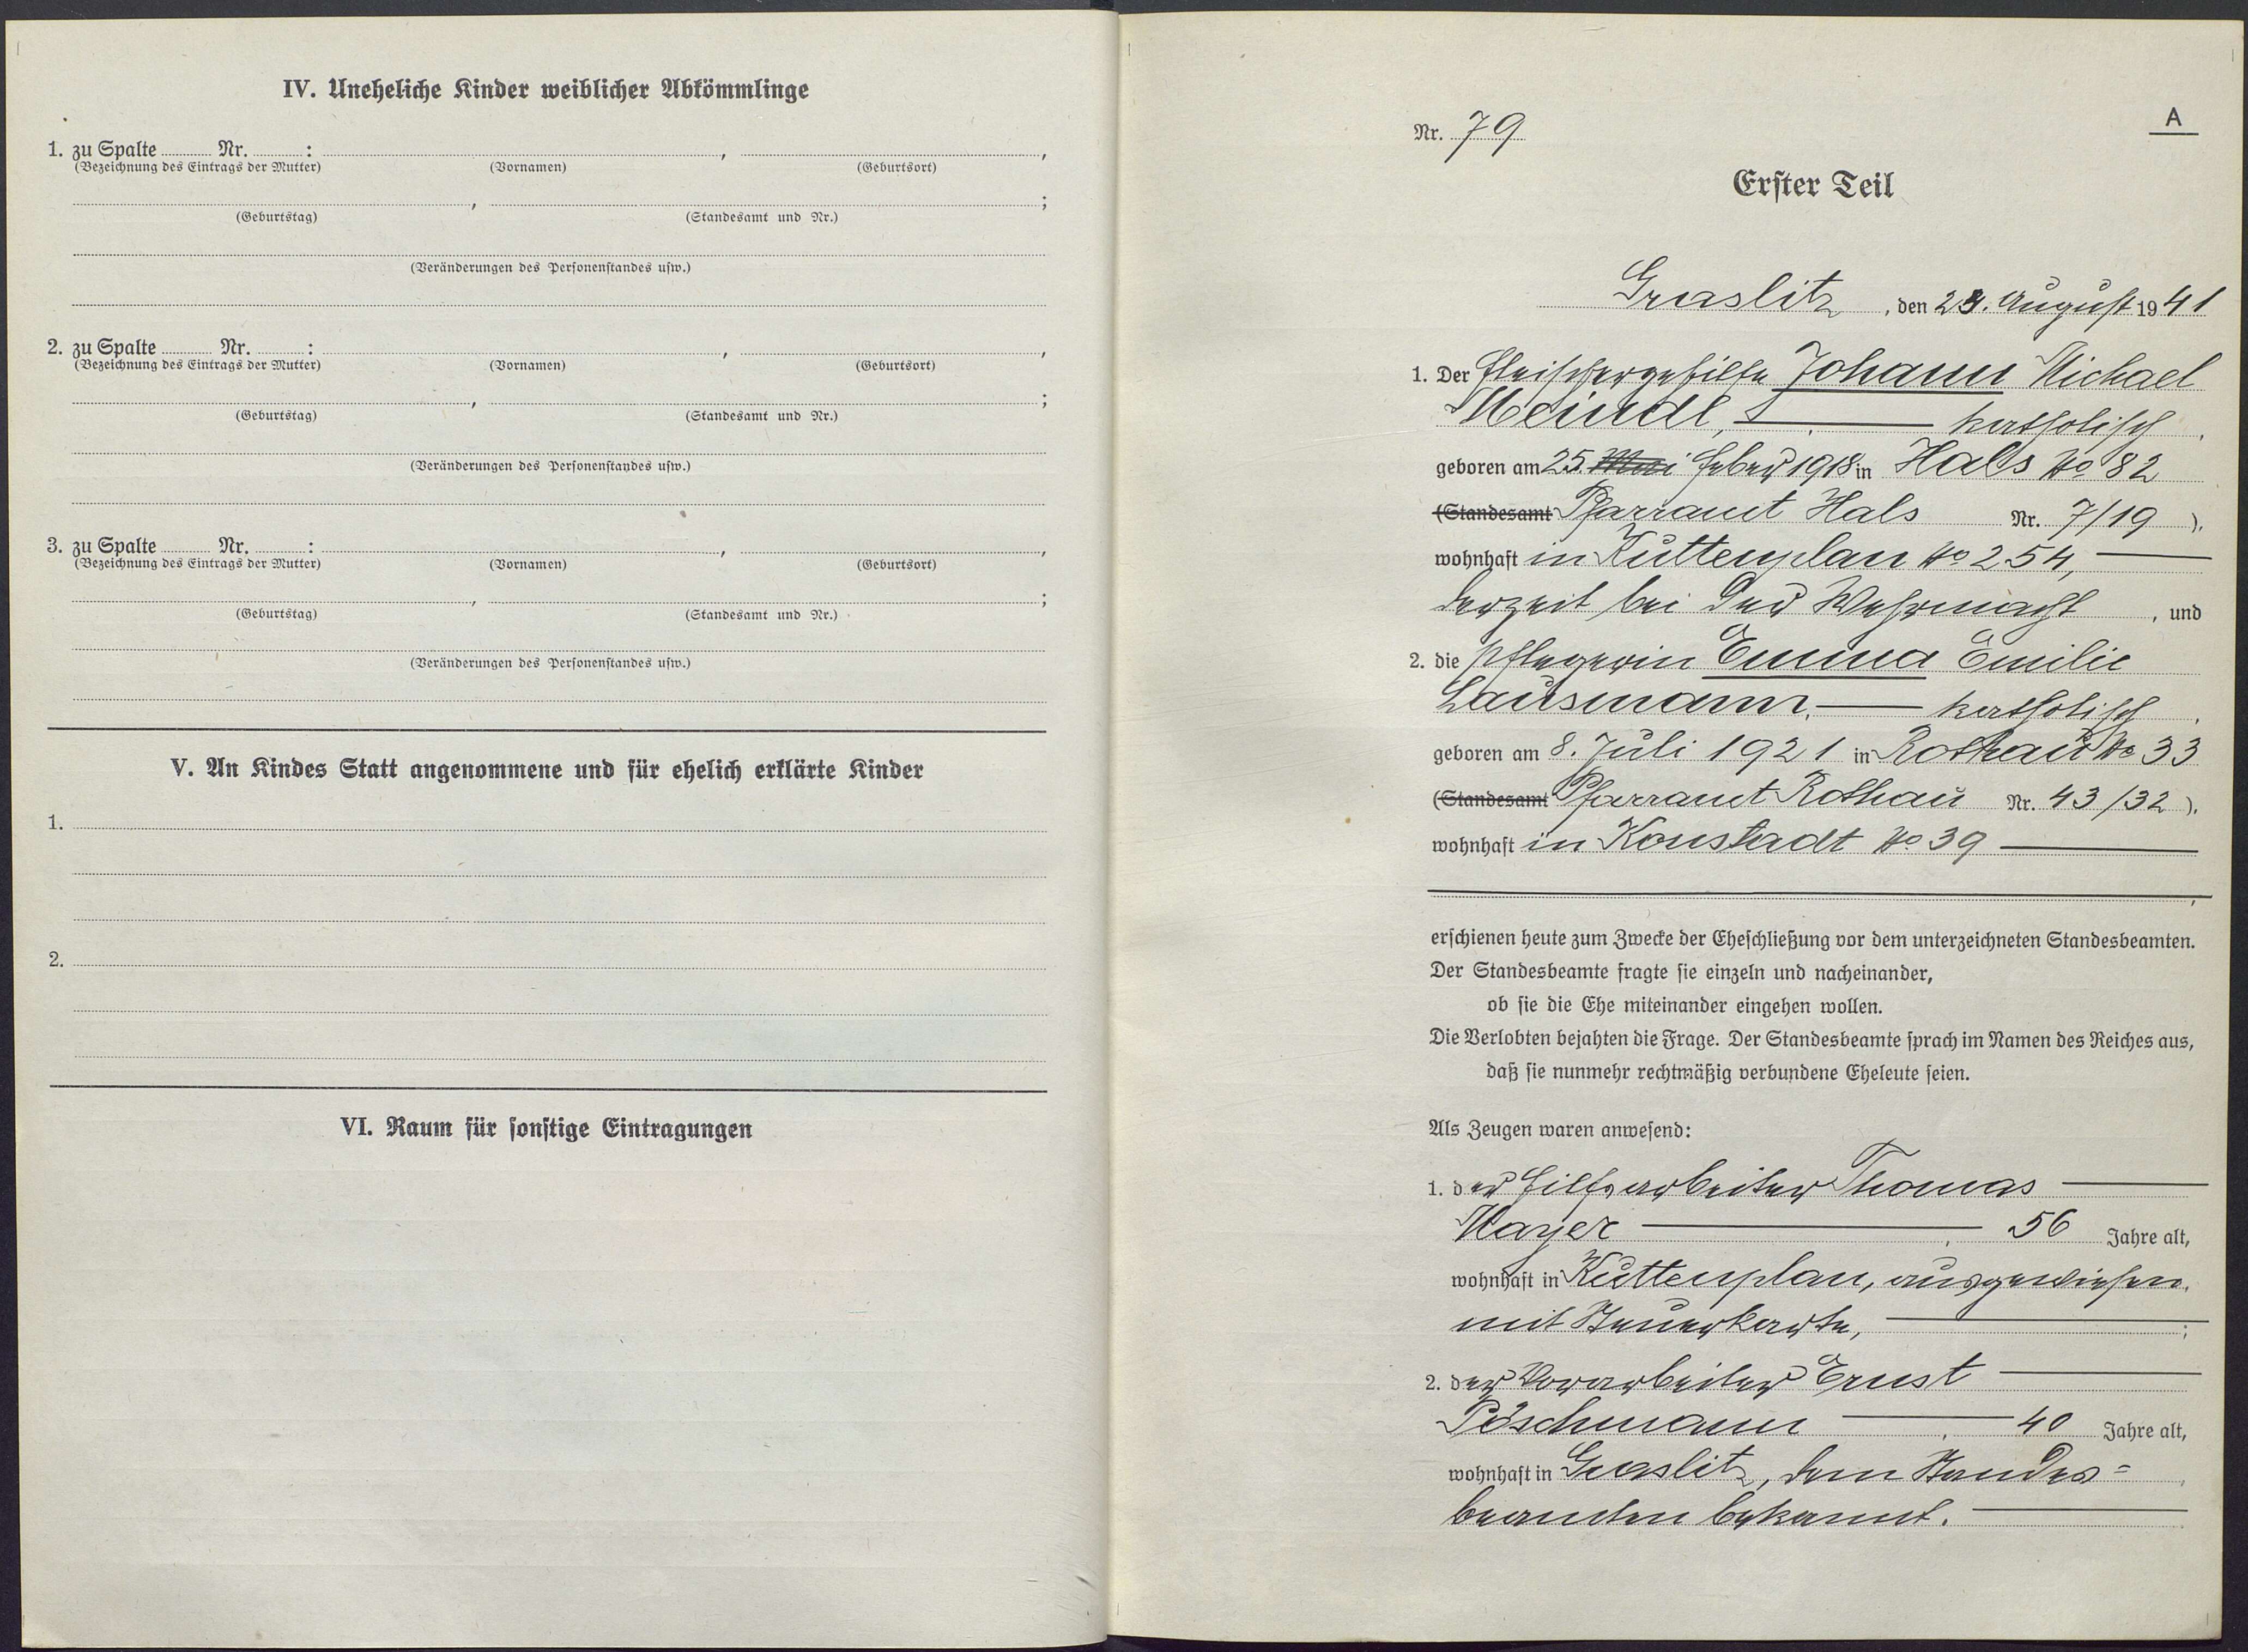 IV. Uneheliche Kinder weiblicher Abkömmlinge
1. zu Spalte ........ Nr. ........ : ........ , ........ ,
(Bezeichnung des Eintrags der Mutter) (Vornamen) (Geburtsort)
........ , ........ ;
(Geburtstag) (Standesamt und Nr.)
(Veränderungen des Personenstandes usw.)
2. zu Spalte ........ Nr. ........ : ........ , ........ ,
(Bezeichnung des Eintrags der Mutter) (Vornamen) (Geburtsort)
........ , ........ ;
(Geburtstag) (Standesamt und Nr.)
(Veränderungen des Personenstandes usw.)
3. zu Spalte ........ Nr. ........ : ........ , ........ ,
(Bezeichnung des Eintrags der Mutter) (Vornamen) (Geburtsort)
........ , ........ ;
(Geburtstag) (Standesamt und Nr.)
(Veränderungen des Personenstandes usw.)
V. An Kindes Statt angenommene und für ehelich erklärte Kinder
1.
2.
VI. Raum für sonstige Eintragungen
A
Nr. 79
Erster Teil
Graslitz, den 23. August 1941
1. Der Fleischergehilfe Johann Michael
Meindl, — katholisch,
geboren am 25. Mai Feber 1918 in Hals No 82
(Standesamt Pfarramt Hals Nr. 7/19).
wohnhaft in Kuttenplan No 254, —
derzeit bei der Wehrmacht, und
2. die Pflegerin Emma Emilie
Lausmann, — katholisch,
geboren am 8. Juli 1921 in Rothau No 33
(Standesamt Pfarramt Rothau Nr. 43/32).
wohnhaft in Konstadt No 39 —
erschienen heute zum Zwecke der Eheschließung vor dem unterzeichneten Standesbeamten.
Der Standesbeamte fragte sie einzeln und nacheinander,
ob sie die Ehe miteinander eingehen wollen.
Die Verlobten bejahten die Frage. Der Standesbeamte sprach im Namen des Reiches aus,
daß sie nunmehr rechtmäßig verbundene Eheleute seien.
Als Zeugen waren anwesend:
1. der Hilfsarbeiter Thomas —
Mayer — , 56 Jahre alt,
wohnhaft in Kuttenplan, ausgewiesen
mit Steuerkarte, — ;
2. der Vorarbeiter Ernst —
Pöschmann — , 40 Jahre alt,
wohnhaft in Graslitz, dem Standes=
beamten bekannt. —